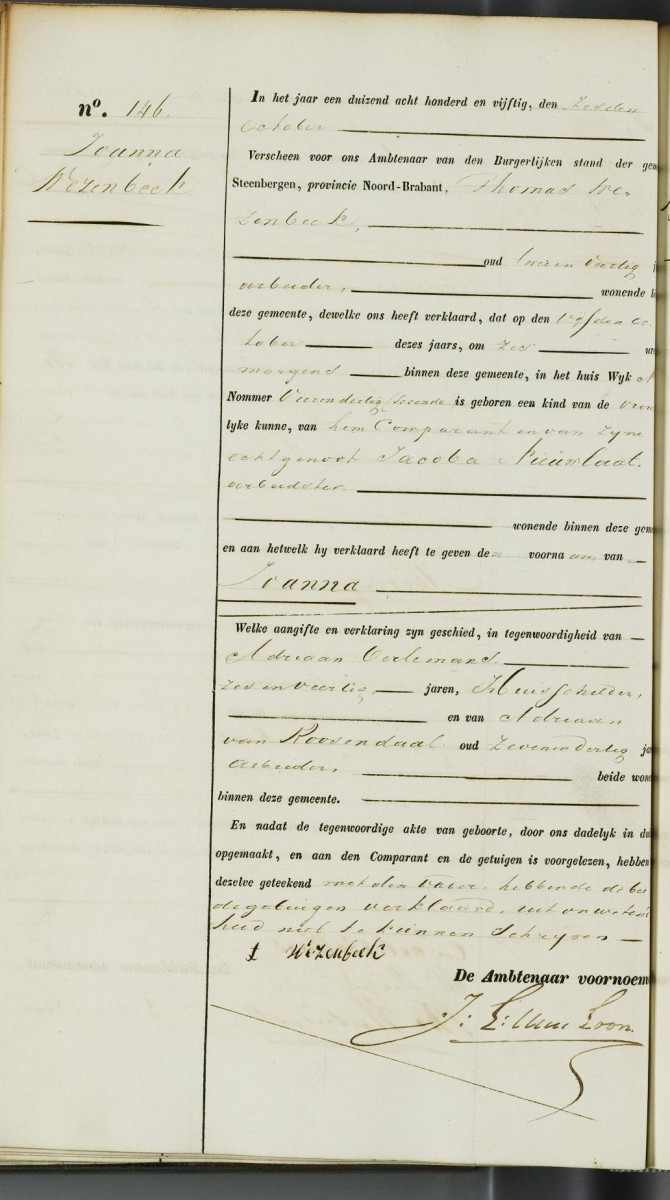 nº. 146.
Joanna
Wezenbeek
In het jaar een duizend acht honderd en vijftig, den zesden
October
Verschen voor ons Ambtenaar van den Burgerlijken stand der gem
Steenbergen, provincie Noord-Brabant, Thomas We-
zenbeek,
oud twee en veertig j
arbeider, wonende b
deze gemeente, dewelke ons heeft verklaard, dat op den vyfden oc-
tober dezes jaars, om zes ur
morgens binnen deze gemeente, in het huis Wyk A
Nommer vierendertig secunde is geboren een kind van de vrou
lyke kunne, van hem Comparant en van zyne
echtgenoot Jacoba Nieuwlaat.
arbeidster
wonende binnen deze gem
en aan hetwelk hy verklaard heeft te geven den voornaam van
Joanna
Welke aangifte en verklaring zyn geschied, in tegenwoordigheid van
Adriaan Oerlemans.
zes en veertig jaren, Huisschilder,
en van Adriaan
van Roosendaal oud zevenendertig ja
arbeider, beide wone
binnen deze gemeente.
En nadat de tegenwoordige akte van geboorte, door ons dadelyk in du
opgemaakt, en aan den Comparant en de getuigen is voorgelezen, hebben
dezelve geteekend met den vader, hebbende de bei
de getuigen verklaard, uit onwetend
heid niet te kunnen schryven
t Wezenbeek
De Ambtenaar voornoem
J: L: van Loon